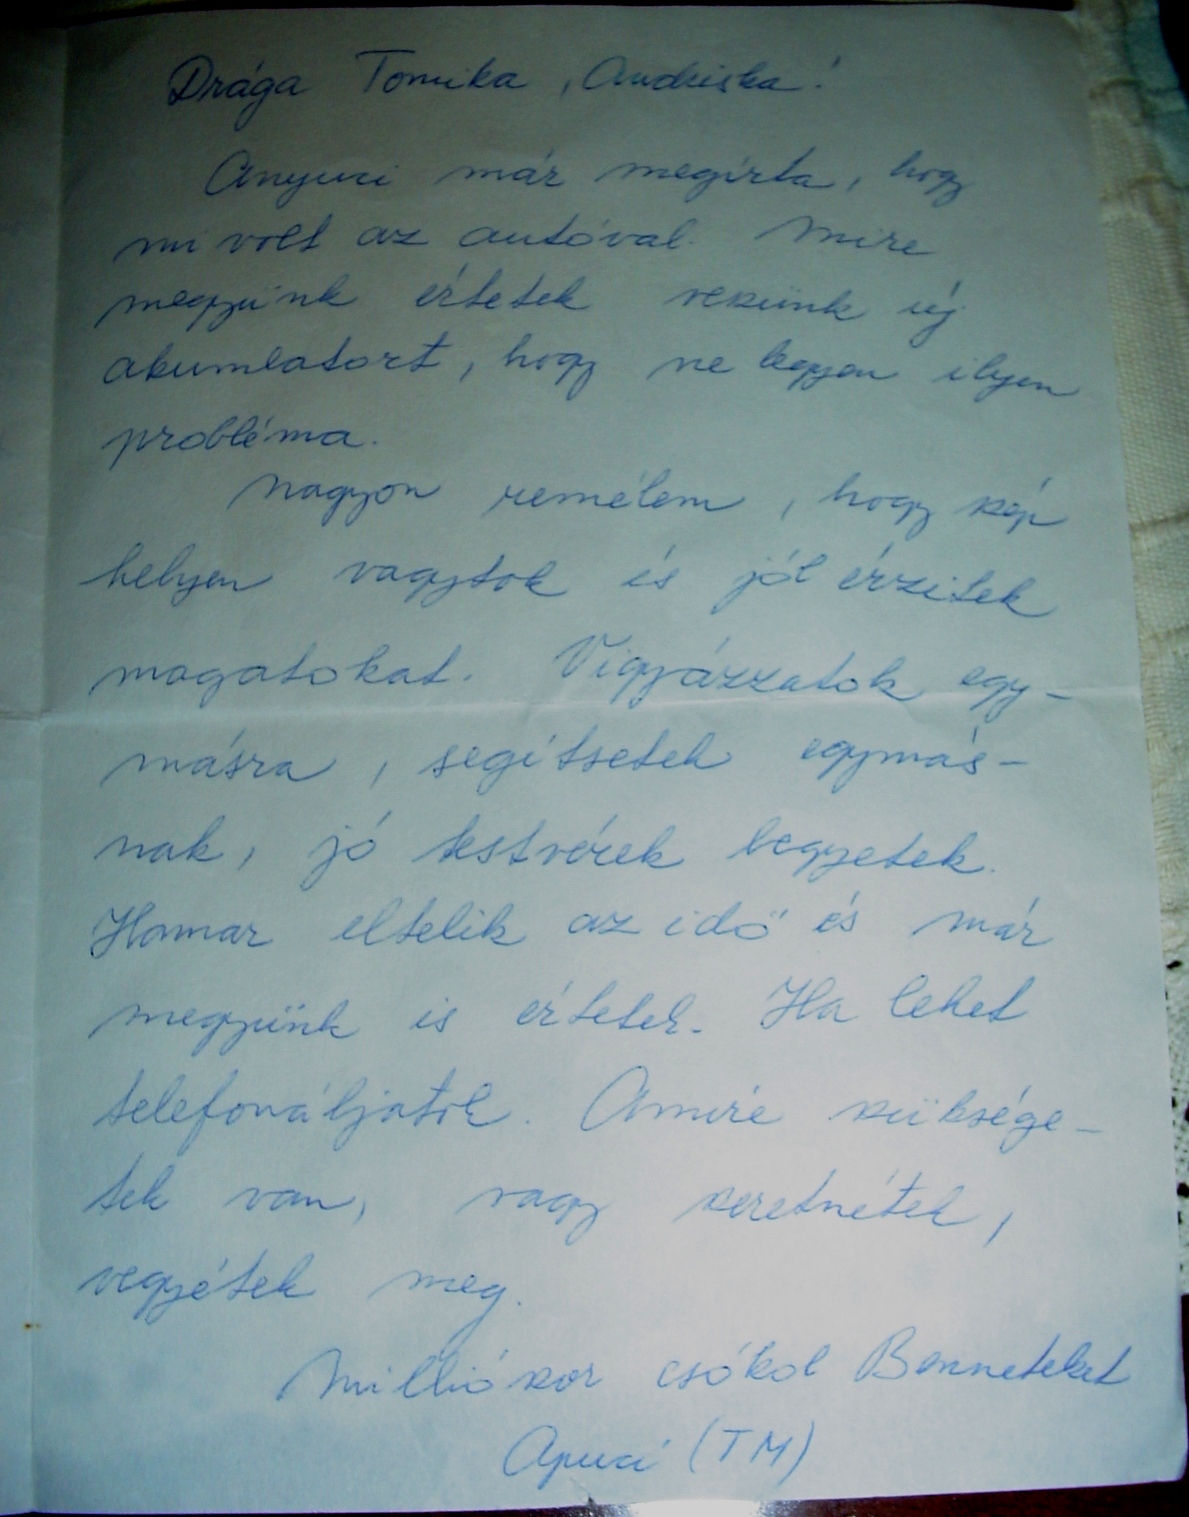 Drága Tomika, Andriska!
Anyuci már megírta, hogy
mi volt az autóval. Mire
megyünk értetek veszünk új
akumlatort, hogy ne legyen ilyen
probléma.
Nagyon remélem, hogy szép
helyen vagytok és jól érzitek
magatokat. Vigyázzatok egy-
másra, segítsetek egymás-
nak, jó testvérek legyetek.
Hamar eltelik az idő és már
megyünk is értetek. Ha lehet
telefonáljatok. Amire szüksége-
tek van, vagy szeretnétek,
vegyétek meg.
Milliószor csókol Benneteket
Apuci (TM)